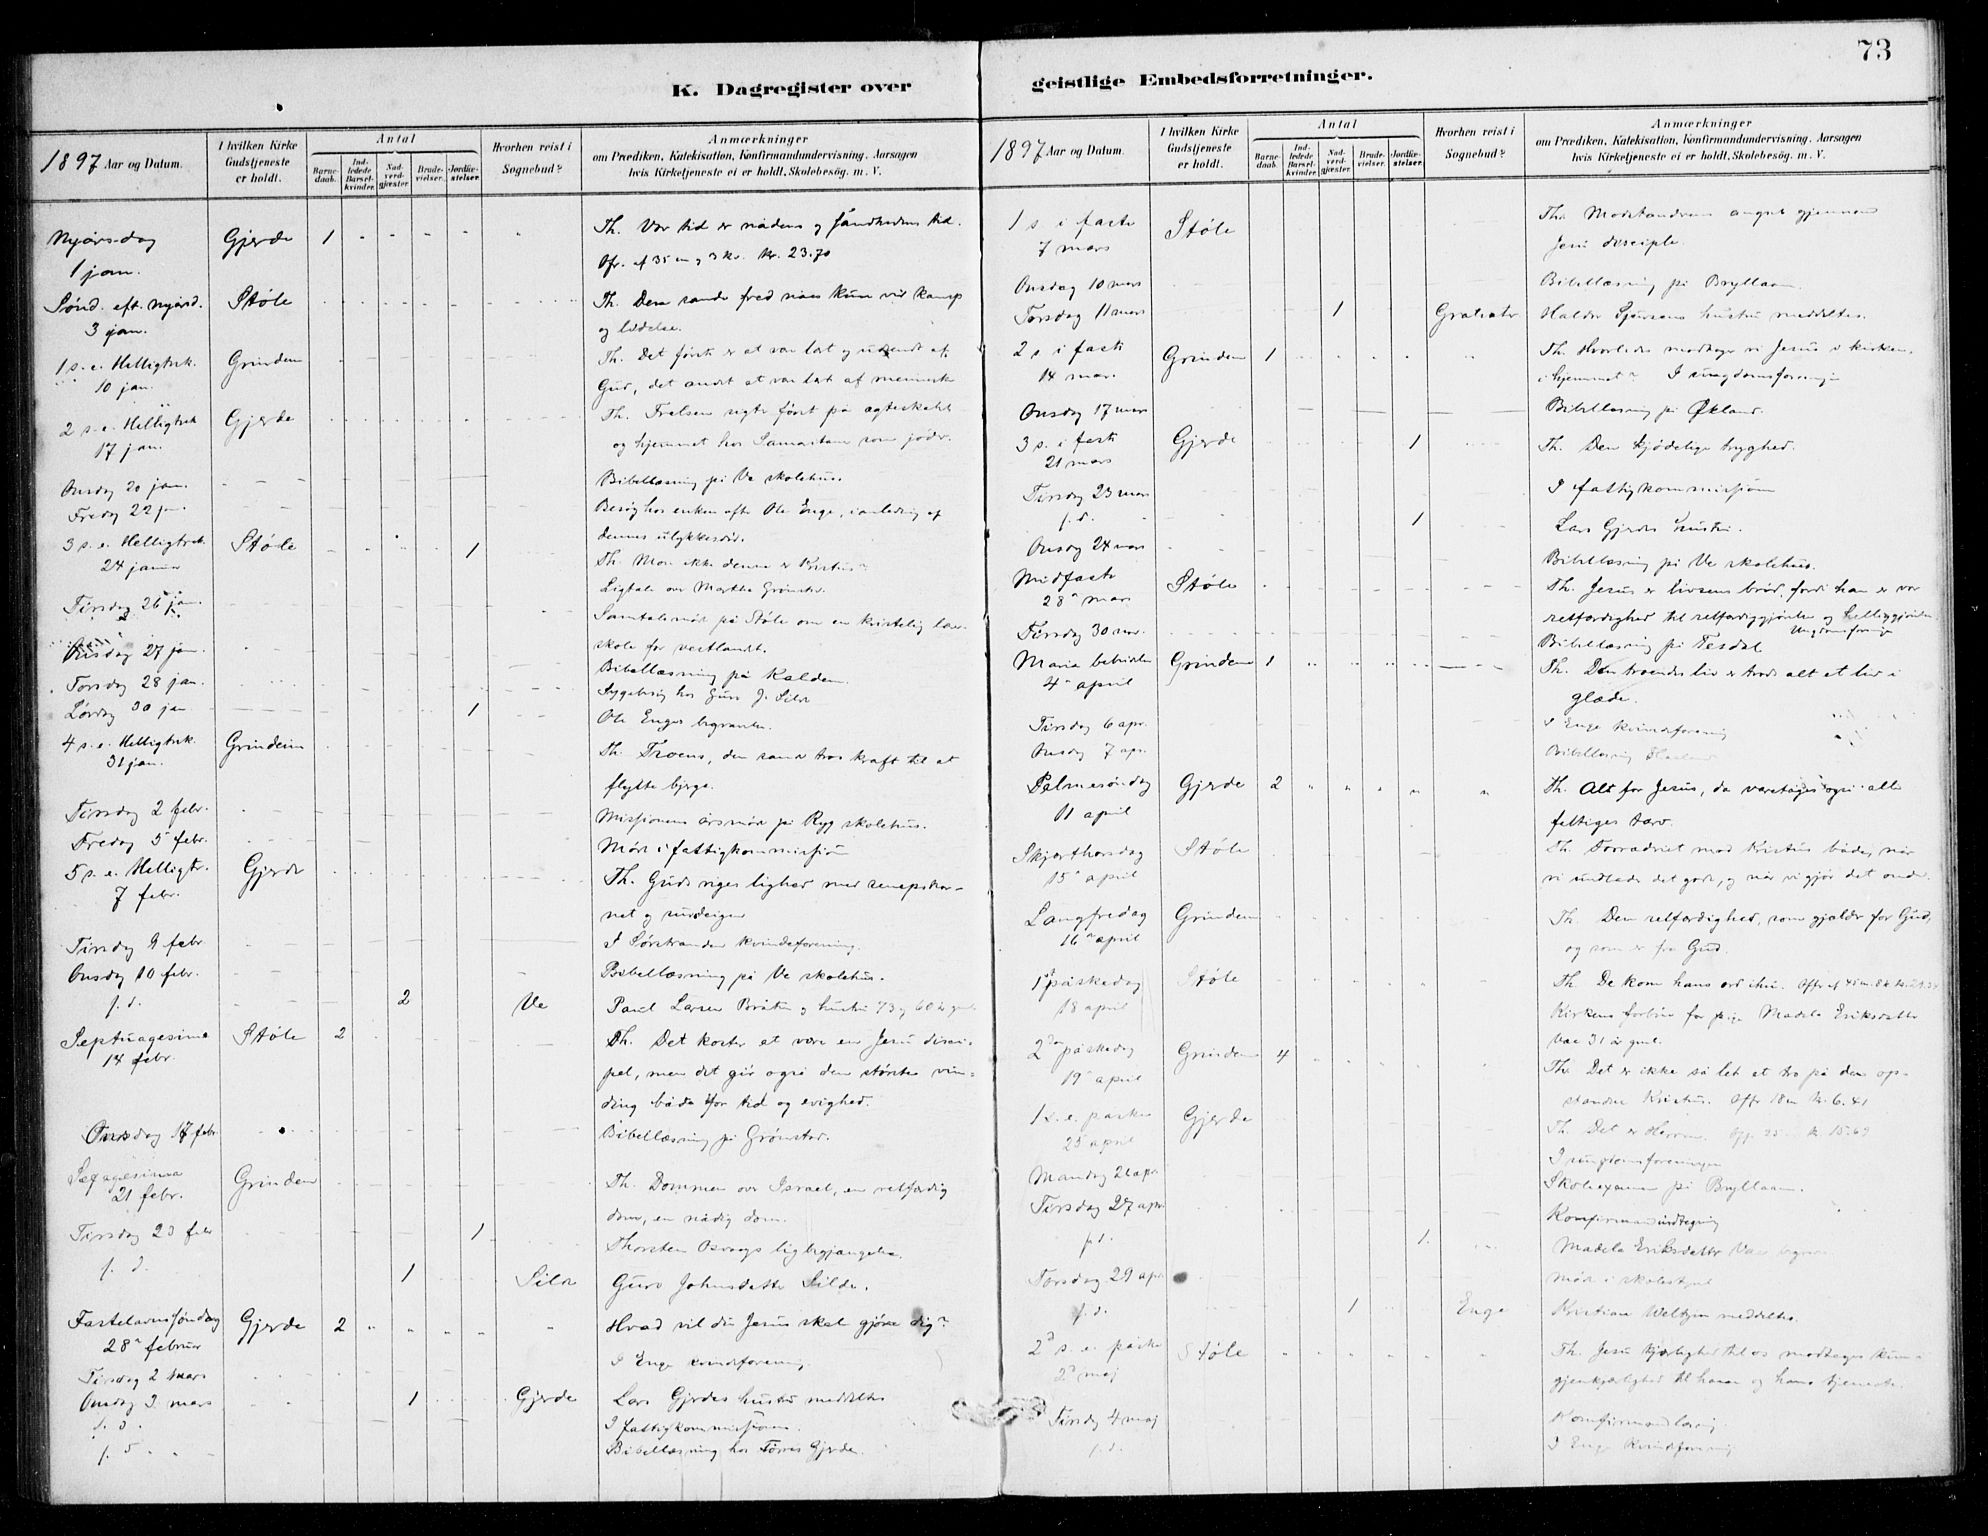 73
K. Dagregister over
1897 Aar og Datum.
I hvilken Kirke Gudstjeneste er holdt.
Antal
Barnedaab.
Indledede Barselkvinder.
Nadverdgjæster.
Brudevielser.
Jordfæstelser.
Hvorhen reist i Sognebud?
Anmærkninger
om Prædiken, Katekisation, Konfirmandundervisning, Aarsagen
hvis Kirketjeneste ei er holdt, Skolebesög. m. V.
Nyårsdag Gjerde 1 Th. Vor tid er nådens og sandhedens tid.
1 jan. Ofr. af 35 m og 3 kv. kr. 23.70
Sønd. eft. nyårsd. Støle Th. Den sande fred nåes kun ved kamp
3 jan. og lidelse.
1 s. e. Helligtrk. Grindem Th. Det første er at være lært og udsendt af
10 jan. Gud, det andet at være lært af mennesker
2 s. e. Helligtrk Gjerde Th. Frelsen sigter først på ægteskabet
17 jan. og hjemmet hos Samaritan som jøder.
Onsdag 20 jan. Bibellæsning på Ve skolehus.
Fredag 22 jan. Besøg hos enken efter Ole Enge, i anledning af
dennes ulykkesdød.
3 s. e. Helligtrk. Støle 1 Th. Mon ikke denne er Kristus?
24 januar Ligtale over Marthe Grønstad.
Tirsdag 26 jan. Samtalemøde på Støle om en kristelig
skole for vestlandet.
Onsdag 27 jan. Bibellæsning på Kalden.
Torsdag 28 jan. Sygebesøg hos Guro J. Silde
Lørdag 30 jan 1 Ole Enges begravelse.
4 s. e. Helligtrk. Grindeim Th. Troens, den sande tros kraft til at
31 jan. flytte bjerge.
Tirsdag 2 febr. Missionens årsmøde på Ryg skolehus.
Fredag 5 febr. Møde i fattigkommission
5 s. e. Helligtr. Gjerde Th. Guds riges lighed med sennepskor-
7 febr. net og surdeigen
Tirsdag 9 febr I Sørstranden kvindeforening.
Onsdag 10 febr. Bibellæsning på Ve skolehus.
s. d. 2 Ve Paul Larsen Bråten og hustru 73 og 60 år gml.
Septuagesima Støle 2 Th. Det koster at være en Jesu disci-
14 febr. pel, men det gir også den største vin-
ding både for tid og evighed.
Onsdag 17 febr. Bibellæsning på Grønstad.
Sexagesima Grindem Th. Dommen over Israel, en retfærdig
21 febr. dom, en nådig dom.
Tirsdag 23 febr 1 Thorsten Osvågs ligbegjængelse.
s. d. 1 Silde Guro Johnsdatter Silde.
Fastelavnssøndag Gjerde 2 Hvad vil du Jesus skal gjøre dig?
28 februar
Tirsdag 2 mars I Enge kvindeforening
Onsdag 3 mars 1 Gjerde Lars Gjerdes hustru meddeltes
s. d. I fattigkommissionen.
Bibellæsning hos Tørres Gjerde.
geistlige Embedsforretninger.
1897 Aar og Datum.
I hvilken Kirke Gudstjeneste er holdt.
Antal
Barnedaab.
Indledede Barselkvinder.
Nadverdgjæster.
Brudevielser.
Jordfæstelser.
Hvorhen reist i Sognebud?
Anmærkninger
om Prædiken, Katekisation, Konfirmandundervisning, Aarsagen
hvis Kirketjeneste ei er holdt, Skolebesög. m. V.
1 s. i faste Støle Th. Modstandernes angreb gjennem
7 mars Jesu disciple.
Onsdag 10 mars Bibellæsning på Bryllaam.
Torsdag 11 mars 1 Halder Sjursens hustru meddeltes.
2 s. i faste Grindem 1 Th. Hvorledes modtager vi Jesus i kirken,
14 mars i hjemmet? I ungdomsforeningen
Onsdag 17 mars Bibellæsning på Økland.
3 s. i faste Gjerde 1 Th. Den kjødelige tryghed.
21 mars
Tirsdag 23 mars I fattigkommission
s. d. 1 Lars Gjerdes hustru.
Onsdag 24 mars Bibellæsning på Ve skolehus.
Midfaste Støle Th. Jesus er livsens brød, fordi han er vor
28 mars retfærdighed til retfærdiggjørelse og helliggjørelse.
Tirsdag 30 mars Bibellæsning på Tesdal Ungdomsforening
Maria bebudelse Grindem 1 Th. Den troendes liv er trods alt et liv i
4 april glæde.
Tirsdag 6 apr. I Enge kvindeforening
Onsdag 7 apr. Bibellæsning
Palmesøndag Gjerde 2 Th. Alt for Jesus, da varetages også alle
11 april fattiges tarv.
Skjærthorsdag Støle Th. Forræderiet mod Kristus både når
15 april vi undlader det gode, og når vi gjør det onde.
Langfredag Grindem Th. Den retfærdighed, som gjælder for Gud,
16 april og som er fra Gud.
1 påskedag Støle Th. De kom hans ord ihu.
18 april Kirkens forbøn for pige Madela Eriksdatter
Vae 31 år gml.
2den påskedag Grindem 4 Th. Det er ikke så let at tro på den op-
19 april standne Kristus. Ofr 18 m kr. 6.41
1 s. e. påske Gjerde Th. Det er Herren. kr. 15.69
25 april I ungdomsforeningen
Mandag 26 apr. Skoleexamen på Bryllaam.
Tirsdag 27 apr. Konfirmandindtegning
s. d. 1 Madela Eriksdatter Vae
Torsdag 29 apr. Møde i skolestyret
s. d. 1 Enge Kristian meddeltes.
2 s. e. påske Støle Th. Jesu kjærlighed til os modtages kun
2 maj gjenkjærlighed til ham og hans tjeneste.
Tirsdag 4 maj Konfirmandlæsning
s. d. I Enge Kvindeforening